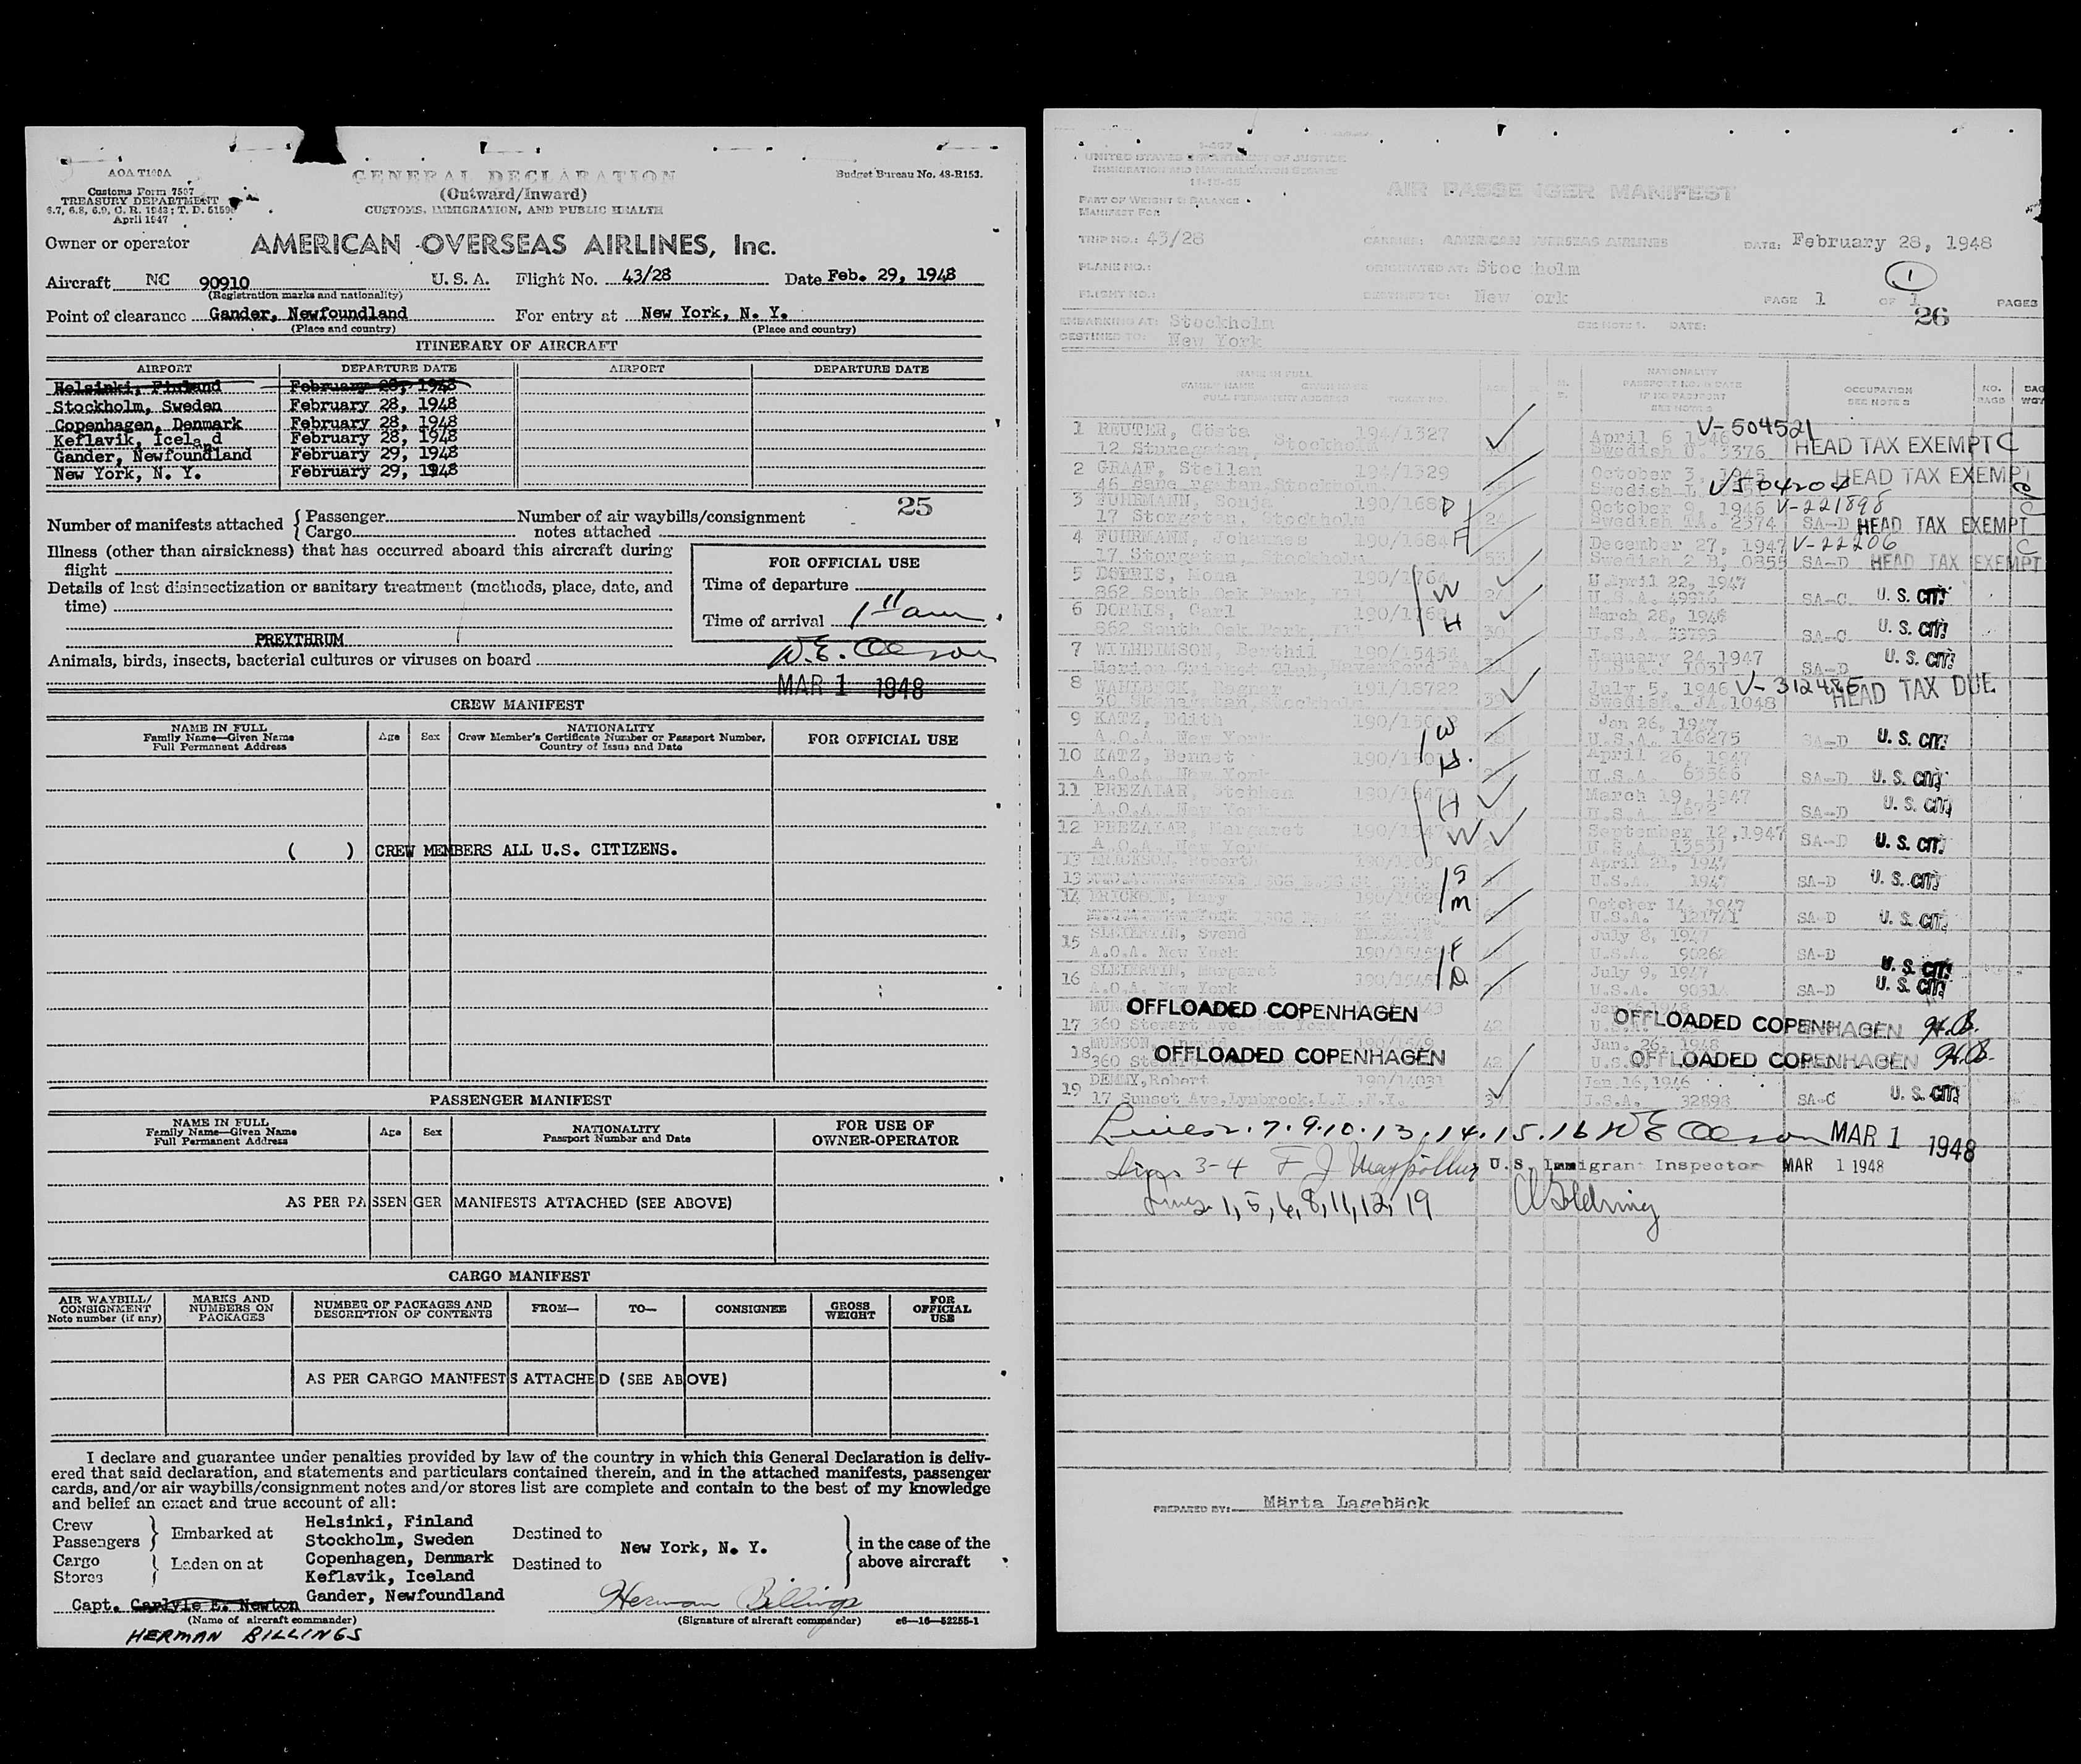 AOA T100A
Customs Form 7507
TREASURY DEPARTMENT
6.7, 6.8, 6.9, C. R. 1943; T. D. 51590
April 1947
GENERAL DECLARATION
(Outward/Inward)
CUSTOMS, IMMIGRATION, AND PUBLIC HEALTH
Budget Bureau No. 48-R153.
Owner or operator AMERICAN OVERSEAS AIRLINES, Inc.
Aircraft NC 90910 U. S. A. Flight No. 43/28 Date Feb. 29, 1948
(Registration marks and nationality)
Point of clearance Gander, Newfoundland For entry at New York, N. Y.
(Place and country) (Place and country)
ITINERARY OF AIRCRAFT
AIRPORT DEPARTURE DATE AIRPORT DEPARTURE DATE
Helsinki, Finland February 28, 1948
Stockholm, Sweden February 28, 1948
Copenhagen, Denmark February 28, 1948
Keflavik, Iceland February 28, 1948
Gander, Newfoundland February 29, 1948
New York, N. Y. February 29, 1948
25
Number of manifests attached { Passenger Number of air waybills/consignment
Cargo notes attached
Illness (other than airsickness) that has occurred aboard this aircraft during
flight
Details of last disinsectization or sanitary treatment (methods, place, date, and
time)
PREYTHRUM
Animals, birds, insects, bacterial cultures or viruses on board
FOR OFFICIAL USE
Time of departure
Time of arrival 1 11 am
W.E. Oleson
MAR 1 1948
CREW MANIFEST
NAME IN FULL
Family Name—Given Name
Full Permanent Address
Age Sex
NATIONALITY
Crew Member's Certificate Number or Passport Number,
Country of Issue and Date
FOR OFFICIAL USE
( ) CREW MEMBERS ALL U.S. CITIZENS.
PASSENGER MANIFEST
NAME IN FULL
Family Name—Given Name
Full Permanent Address
Age Sex
NATIONALITY
Passport Number and Date
FOR USE OF
OWNER-OPERATOR
AS PER PASSENGER MANIFESTS ATTACHED (SEE ABOVE)
CARGO MANIFEST
AIR WAYBILL/
CONSIGNMENT
Note number (if any)
MARKS AND
NUMBERS ON
PACKAGES
NUMBER OF PACKAGES AND
DESCRIPTION OF CONTENTS
FROM— TO— CONSIGNEE
GROSS
WEIGHT
FOR
OFFICIAL
USE
AS PER CARGO MANIFESTS ATTACHED (SEE ABOVE)
I declare and guarantee under penalties provided by law of the country in which this General Declaration is deliv-
ered that said declaration, and statements and particulars contained therein, and in the attached manifests, passenger
cards, and/or air waybills/consignment notes and/or stores list are complete and contain to the best of my knowledge
and belief an exact and true account of all:
Crew
Passengers } Embarked at
Cargo
Stores } Laden on at
Helsinki, Finland
Stockholm, Sweden
Copenhagen, Denmark
Keflavik, Iceland
Gander, Newfoundland
Destined to
Destined to
New York, N. Y.
in the case of the
above aircraft
Capt. Carlyle E. Newton
(Name of aircraft commander)
HERMAN BILLINGS
Herman Billings
(Signature of aircraft commander) c6—16—52255-1
UNITED STATES DEPARTMENT OF JUSTICE
IMMIGRATION AND NATURALIZATION SERVICE
AIR PASSENGER MANIFEST
PART OF WEIGHT & BALANCE
MANIFEST FOR
TRIP NO.: 43/28 CARRIER: AMERICAN OVERSEAS AIRLINES DATE: February 28, 1948
PLANE NO.: ORIGINATED AT: Stoc holm 1
FLIGHT NO.: DESTINED TO: New ork PAGE 1 OF 1 PAGES
26
EMBARKING AT: Stockholm SEE NOTE 1. DATE:
DESTINED TO: New York
NATIONALITY
PASSPORT NO. & DATE
IF NO PASSPORT
SEE NOTE
OCCUPATION
SEE NOTE
NO.
BAGS
BAG
WGT
1 REUTER, Gösta 194/1327 April 6 1946 V-504521
12 Sturegatan, Stockholm Swedish U. 3376 HEAD TAX EXEMPT C
2 GRAAF, Stellan 194/1329 October 3, 1945 HEAD TAX EXEMPT
3 FUHRMANN, Sonja 190/1684 D October 9, 1946 V-221898
17 Storgatan, Stockholm 24 Swedish TA. 2374 SA-D HEAD TAX EXEMPT
4 FUHRMANN, Johannes 190/1684 F December 27, 1947 V-22206
17 Storgatan, Stockholm 53 Swedish 2 B, 0855 SA-D HEAD TAX EXEMPT C
5 DORRIS, Mona 190/1764 W April 22, 1947
862 South Oak Park, Ill 24 U.S.A. SA-C U. S. CIT.
6 DORRIS, Carl 190/1763 H March 28, 1946
862 South Oak Park, Ill 30 U.S.A. SA-C U. S. CIT.
7 WILHELMSON, Berthil 190/15454 January 24 1947
SA-D U. S. CIT.
8 Ragnar 191/18722 July 5, 1946 V-312486
39 Swedish, JA 1048 HEAD TAX DUE
9 KATZ, Edith W Jan 26, 1947
A.O.A. New York U.S.A. 146275 SA-D U. S. CIT.
10 KATZ, Bennet H. April 26, 1947
A.O.A. New York U.S.A. 63586 SA-D U. S. CIT.
11 PREZALAR, Stephen H March 19, 1947
A.O.A. New York U.S.A. SA-D U. S. CIT.
12 PREZALAR, Margaret W September 12, 1947
A.O.A. New York U.S.A. SA-D U. S. CIT.
13 ERICKSON, S April 21, 1947
U.S.A. 1947 SA-D U. S. CIT.
14 ERICKSON, Mary M October 14, 1947
U.S.A. 121741 SA-D U. S. CIT.
15 SLEIERTIN, Svend F July 8, 1947
A.O.A. New York U.S.A. 90262 SA-D U. S. CIT.
16 SLEIERTIN, Margaret D July 9, 1947
A.O.A. New York U.S.A. 90314 SA-D U. S. CIT.
OFFLOADED COPENHAGEN OFFLOADED COPENHAGEN H.B.
17 360 Stewart Ave. New York 42
18 MUNSON, Jan. 26, 1948
OFFLOADED COPENHAGEN 42 OFFLOADED COPENHAGEN H.B.
19 DENNY, Robert 190/14031 Jan 16, 1946
17 Sunset Ave. Lynbrook, L.I., N.Y. U.S.A. 32898 SA-C U. S. CIT.
Lines 2. 7. 9. 10. 13. 14. 15. 16 W E Oleson MAR 1 1948
Lines 3-4 F J U. S. Immigrant Inspector MAR 1 1948
Lines 1, 5, 6, 8, 11, 12, 19 Goldring
PREPARED BY: Märta Lagebäck